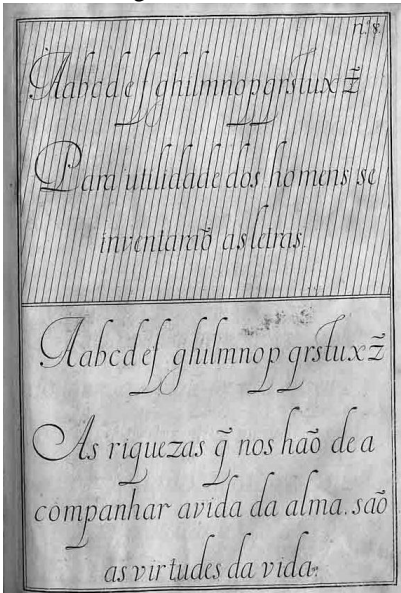 n.º 8.
Aabcdef ghilmnopqrstuxz̃
Para utilidade dos homens se
inventaraõ as letras.
Aabcdef ghilmnop qrstuxz̃
As riquezas q̃ nos haõ de a
companhar avida da alma. saõ
as virtudes da vida.